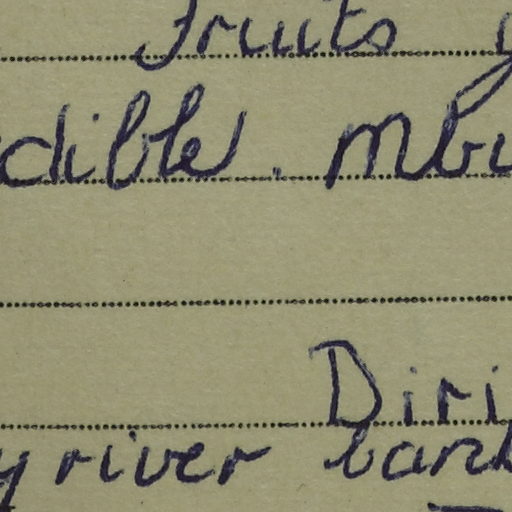 Fruits
edible. Mbu
Diri
y river bank